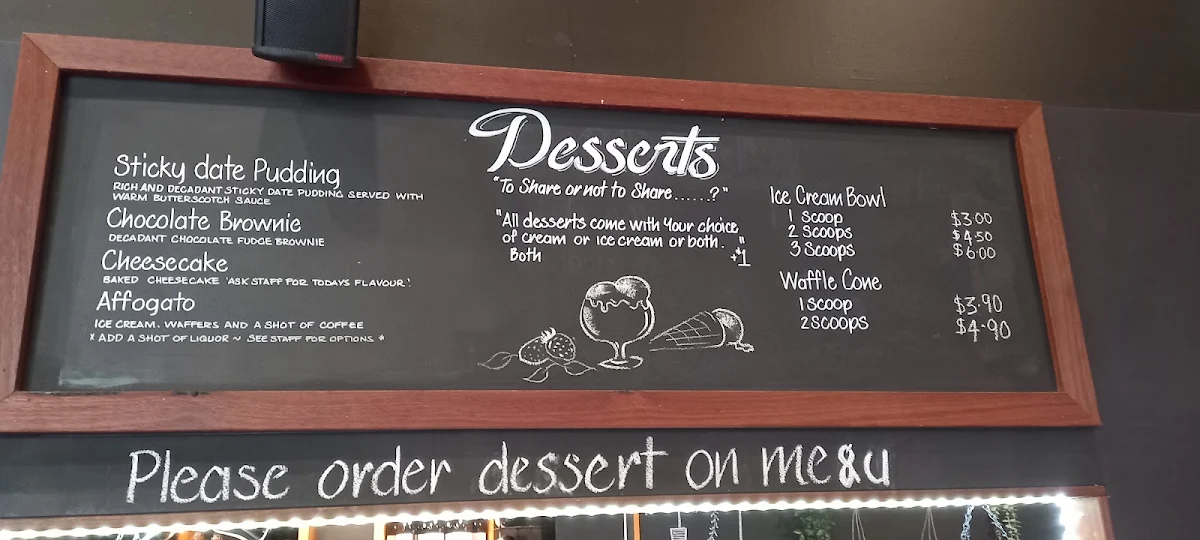 Desserts
"To Share or not to Share......?"
"All desserts come with your choice
of cream or ice cream or both. "
Both +$1
Sticky date Pudding
RICH AND DECADANT STICKY DATE PUDDING SERVED WITH
WARM BUTTERSCOTCH SAUCE
Chocolate Brownie
DECADANT CHOCOLATE FUDGE BROWNIE
Cheesecake
BAKED CHEESECAKE 'ASK STAFF FOR TODAYS FLAVOUR'.
Affogato
ICE CREAM. WAFFERS AND A SHOT OF COFFEE
* ADD A SHOT OF LIQUOR ~ SEE STAFF FOR OPTIONS *
Ice Cream Bowl
1 Scoop $3.00
2 Scoops $4.50
3 Scoops $6.00
Waffle Cone
1 Scoop $3.90
2 Scoops $4.90
Please order dessert on me&u